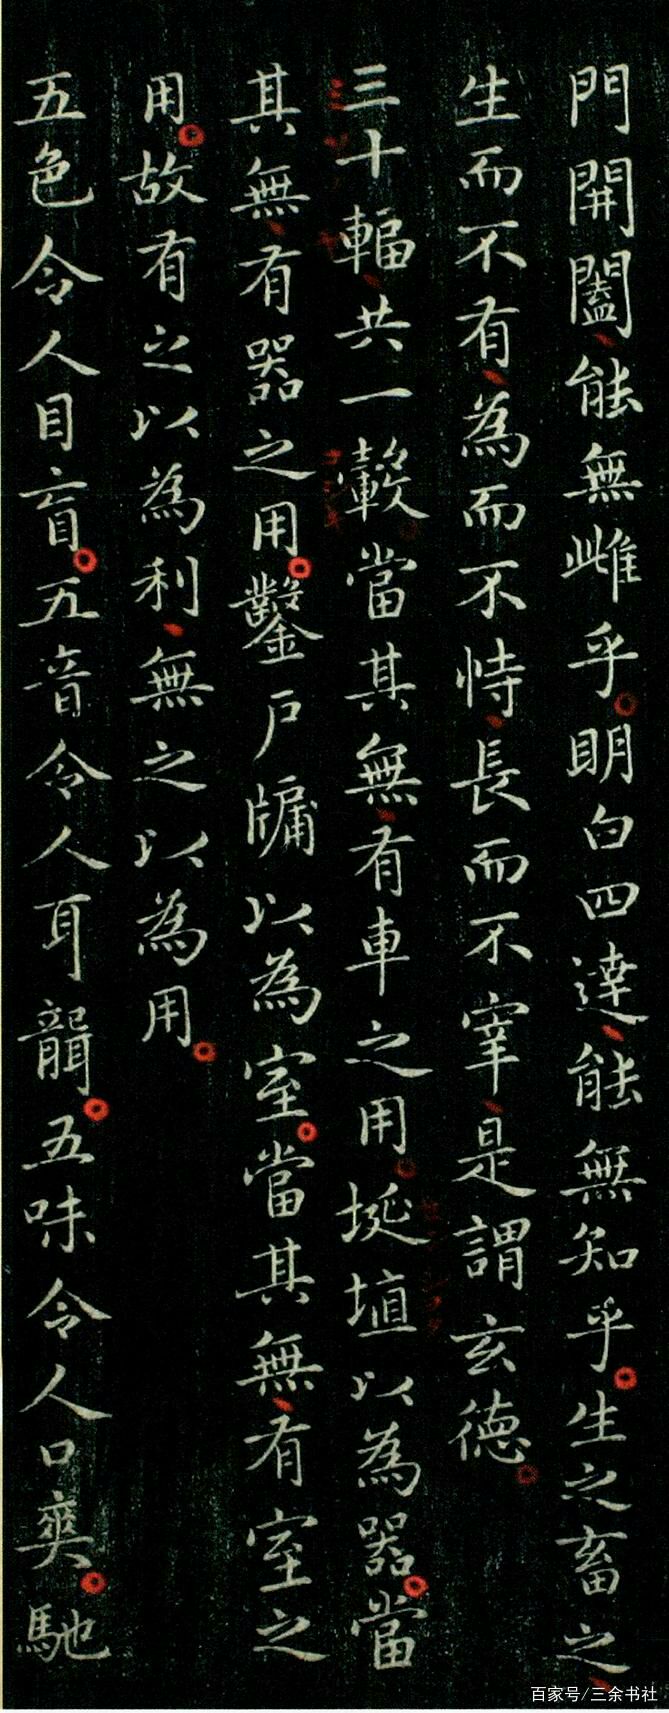 門開闔能無雌乎明白四達能無知乎生之畜之
生而不有為而不恃長而不宰是謂玄德
三十輻共一轂當其無有車之用埏埴以為器當
其無有器之用鑿戶牖以為室當其無有室之
用故有之以為利無之以為用
五色令人目盲五音令人耳聾五味令人口爽馳
百家号/三余书社